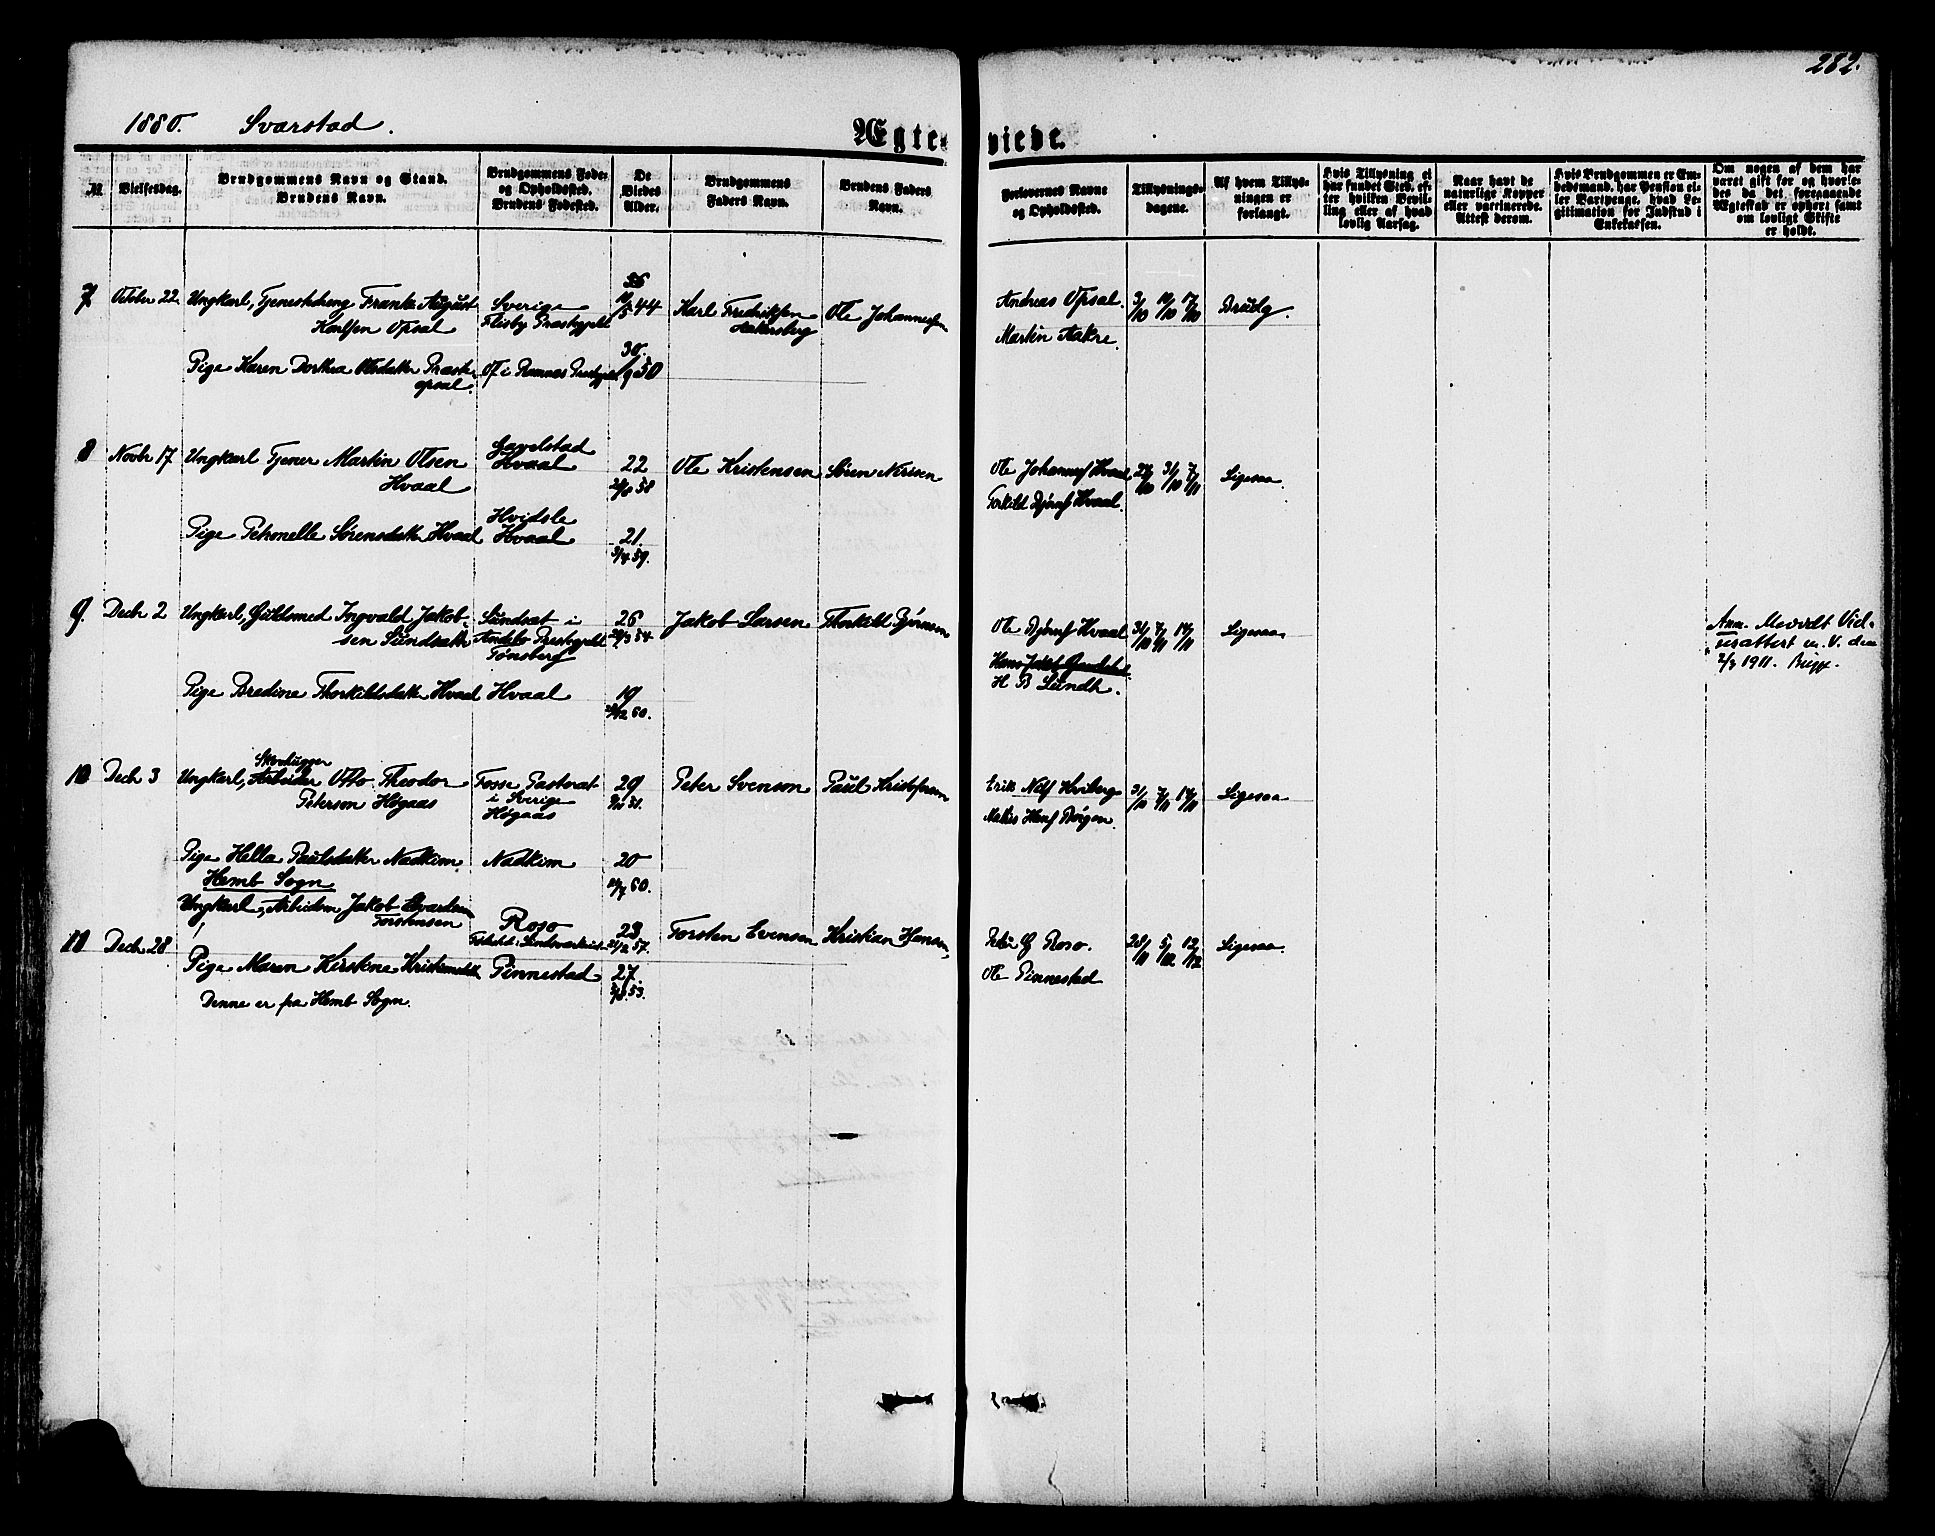 282.
1880. Svarstad.
Ægteviede.
№
Vielsesdag.
Brudgommens Navn og Stand.
Brudens Navn.
Brudgommens Fødeog
Opholdssted.
Brudens Fødested.
De
Viedes
Alder.
Brudgommens
Faders Navn.
Brudens Faders
Navn.
Forlovernes Navne
og Opholdssted.
Tillysningsdagene.
Af hvem Tillysningen
er
forlangt.
Hvis Tillysning ei
har fundet Sted, efter
hvilken Bevilling
eller af hvad
lovlig Aarsag.
Naar havt de
naturlige Kopper
eller vaccinerede.
Attest derom.
Hvis Brudgommen er Embedsmand,
har Pension eller
Vartpenge, hvad Legitimation
for Indskud i
Enkekassen.
Om nogen af dem har
været gift før og hvorledes
da det foregaaende
Ægteskab er ophørt samt
om lovligt Skifte
er holdt.
7. Octbr 22. Ungkarl, Tjenestedreng Frants August
Karlsen Opsal
Sverige
Flisby Præstegjeld
36
10/5 44
Karl Fredriksen
Aakersberg
Ole Johannesen
Andreas Opsal.
Martin Aakre.
3/10 10/10 17/10
Brudg.
Pige Karen Dorthea Olsdatter Præstopsal.
Of i Ramnes Præstegjeld
30.
1/9 50
8 Novbr 17. Ungkarl Tjener Martin Olsen
Hvaal
Gavelstad
Hvaal
22
Ole Kristensen
Søren Nirsen
Ole Johannes Hvaal
Torkild Bjørns Hvaal.
31/10 7/11
Ligesaa
Pige Petronelle Sørensdatter Hvaal
Hvidsle
Hvaal
21.
3/4 59.
9. Decbr 2 Ungkarl, Guldsmed Ingvald Jakobsen
Sundsæth
Sundsat i
Andebo Præstegjeld
Tønsberg
26
Jakob Larsen
Thorkild Bjørnsen
Ole Bjørns Hvaal
H B Lundh.
31/10 7/11 14/11
Ligesaa
Anm. Meddt Vielsesattest
m. V. den
2/3 1911. Brügge.
Pige Bredine Thorkildsdatter Hvaal
Hvaal
19
28/12 60.
10 Decbr 3 Ungkarl, Skovhugger Arbeider Otto Theodor
Peterson Høgaas
Fosse Pastorat
i Sverige
Høgaas
29
Peter Svenson
Paul Kristofersen
Erik Nils Hviberg
Mathis Hans Borgen.
31/10 7/11 14/11
Ligesaa
Pige Hella Paulsdatter Nadkim
Nadkim
20
Hemb Sogn
11 Decbr 28 Ungkarl, Arbeidsm Jakob Edvardsen
Torstensen
Roso
23
Torsten Evensen
Kristian Hansen
Roso.
Ole Pinnestad
28/11 5/12 12/12
Ligesaa.
Pige Maren Kirstine Kristiansdtr
Pinnestad
27.
Denne er fra Hemb Sogn.